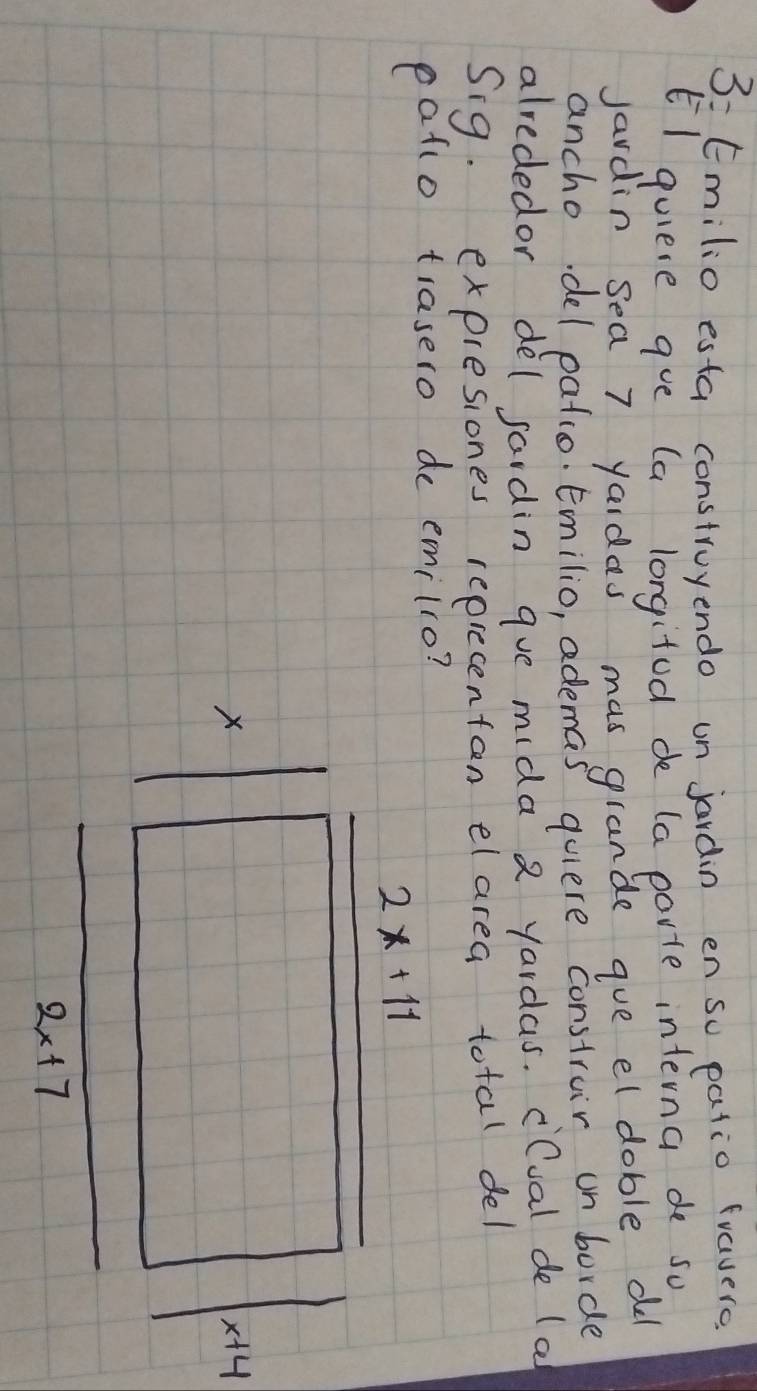 3: Emilio esta construyendo un jardin en su patio travero.
El quiere que la longitud de la parte interna de su
jardin sea 7 yardas mas grande que el doble del
ancho del patio. Emilio, ademas quiere construir un borde
alrededor del jardin que mida 2 yardas. ¿Cual de la
Sig. expresiones reprecentan el area total del
patio trasero de emilio?
2x+11
x
x+4
2x+7